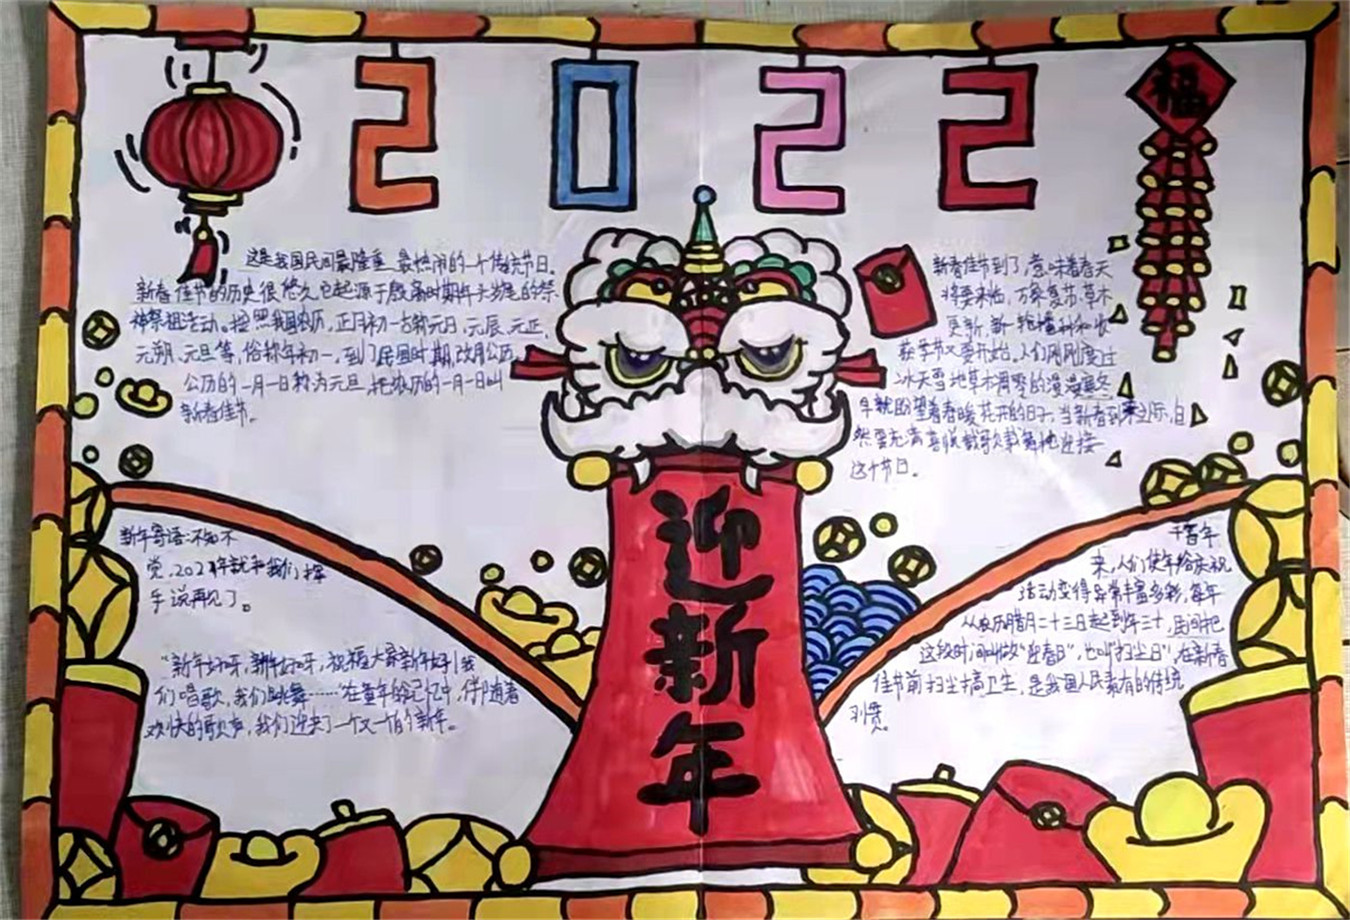 2022
福
这是我国民间最隆重、最热闹的一个传统节日。
新春佳节的历史很悠久,它起源于殷商时期年头岁尾的祭
神祭祖活动。按照我国农历,正月初一古称元日、元辰、元正、
元朔、元旦等,俗称年初一,到了民国时期,改用公历,
公历的一月一日称为元旦,把农历的一月一日叫
新春佳节。
新春佳节到了,意味着春天
将要来临,万象复苏,草木
更新,新一轮播种和收
获季节又要开始。人们刚刚度过
冰天雪地草木凋零的漫漫寒冬,
早就盼望着春暖花开的日子,当新春到来之际,自
然要充满喜悦载歌载舞地迎接
这个节日。
迎新年
新年寄语:不知不
觉,2021年就和我们挥
手说再见了。
“新年好呀,新年好呀,祝福大家新年好!我
们唱歌,我们跳舞……”在童年的记忆中,伴随着
欢快的歌声,我们迎来了一个又一个的新年。
千百年
来,人们使年俗庆祝
活动变得异常丰富多彩,每年
从农历腊月二十三日起到年三十,民间把
这段时间叫做“迎春日”,也叫“扫尘日”,在新春
佳节前扫尘搞卫生,是我国人民素有的传统
习惯。